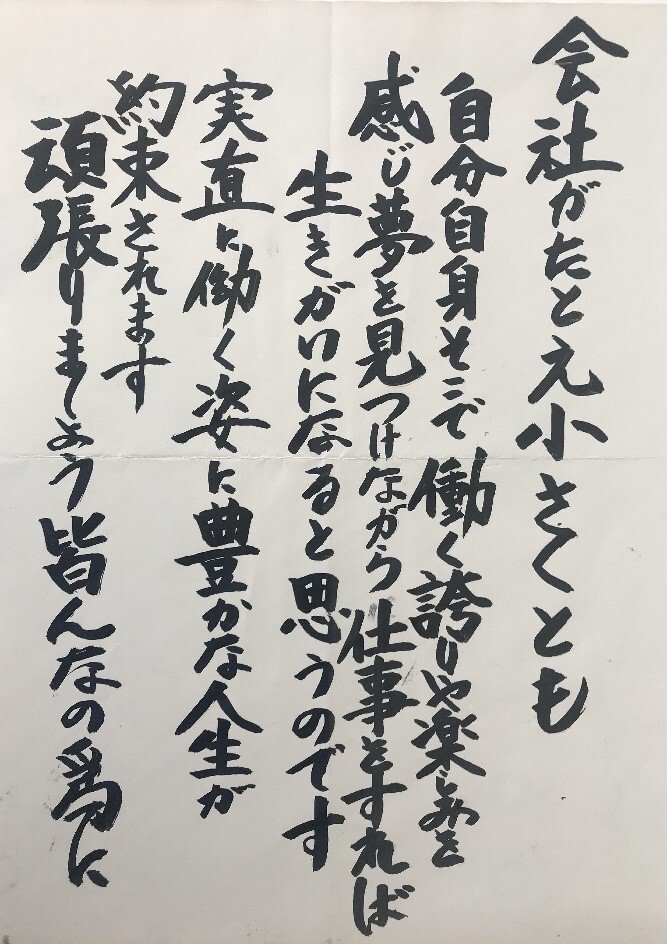 会社がたとえ小さくとも
自分自身そこで働く誇りや楽しみを
感じ夢を見つけながら仕事をすれば
生きがいになると思うのです
実直に働く姿に豊かな人生が
約束されます
頑張りましょう皆んなの為に